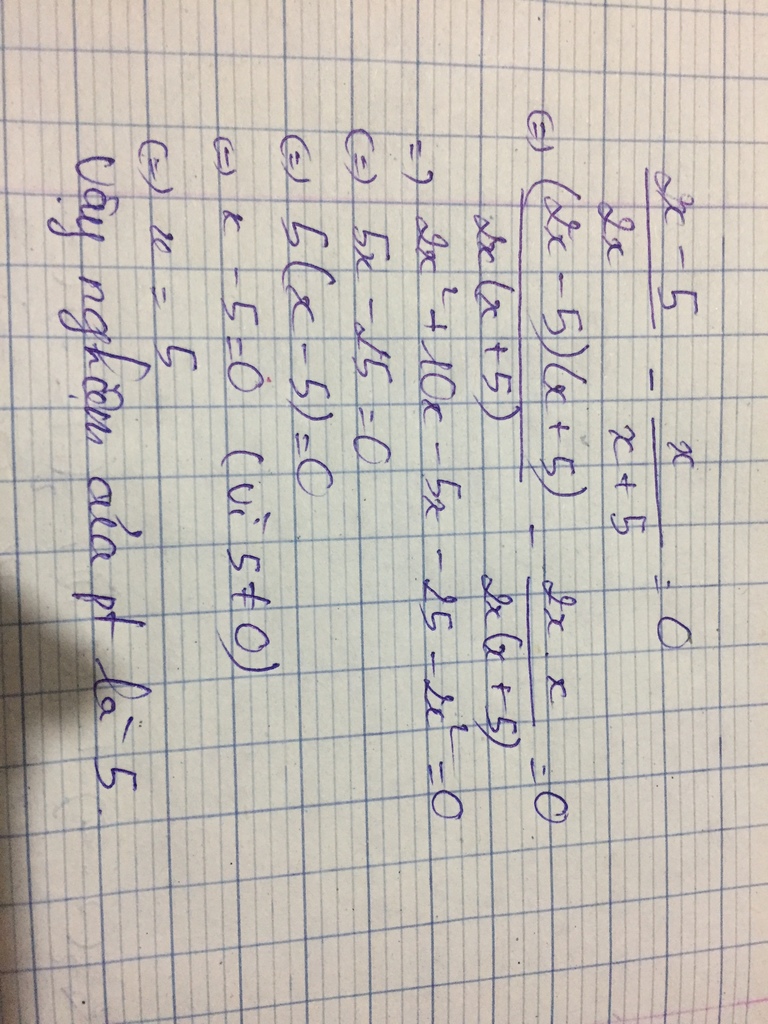 (2x - 5)/(2x) - x/(x + 5) = 0
(=) ((2x - 5)(x + 5))/(2x(x + 5)) - (2x . x)/(2x(x + 5)) = 0
=> 2x² + 10x - 5x - 25 - 2x² = 0
(=) 5x - 25 = 0
(=) 5(x - 5) = 0
(=) x - 5 = 0 (vì 5 ≠ 0)
(=) x = 5
Vậy nghiệm của pt là 5.